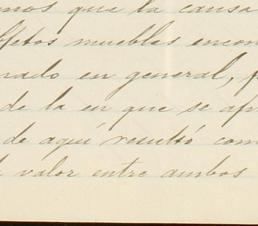 mos que la causa
efetos muebles encon
nado en general, f
de la en que se apr
de aquí resultó com
l valor entre ambos